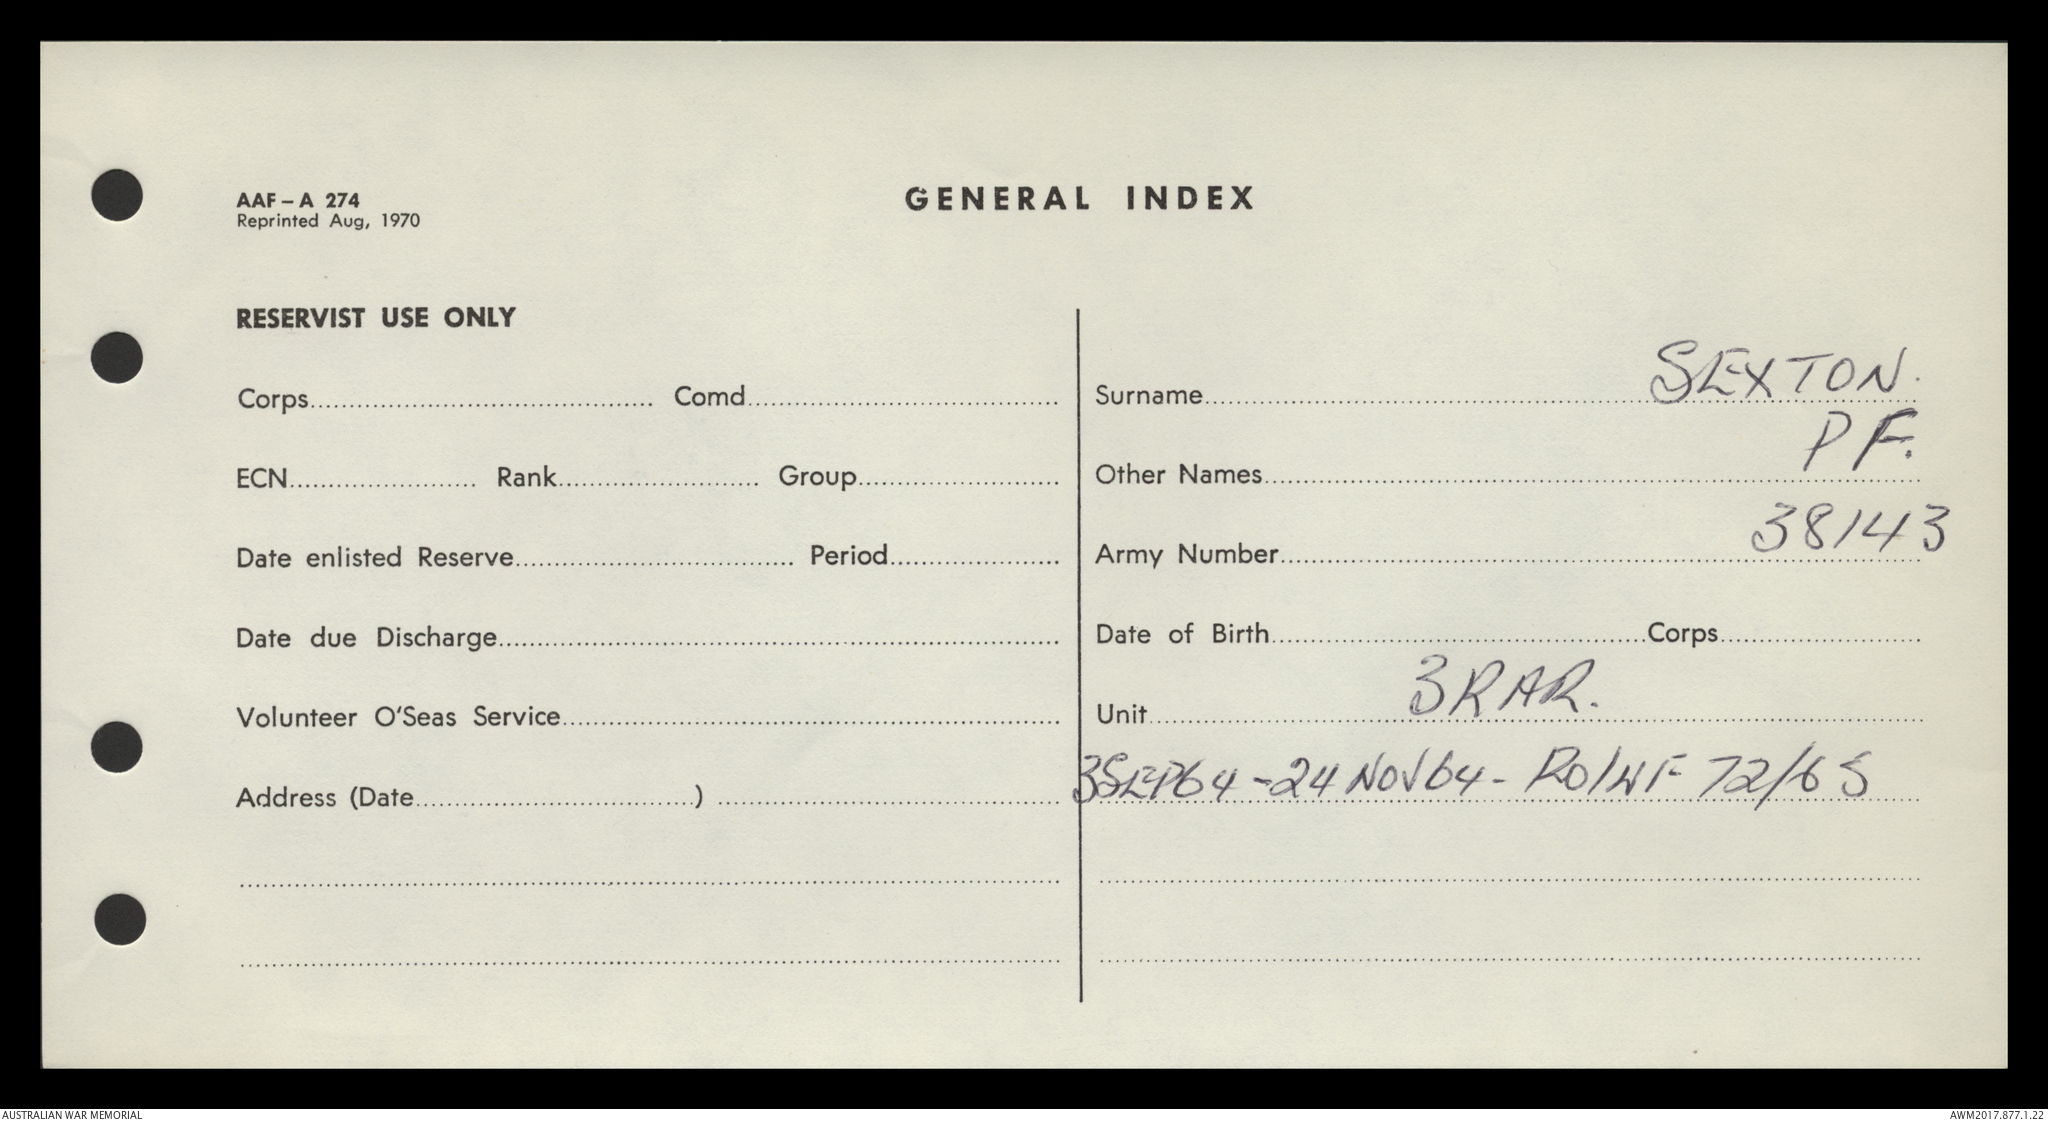 AAF – A 274
Reprinted Aug, 1970
GENERAL INDEX
RESERVIST USE ONLY
Corps
Comd
ECN
Rank
Group
Date enlisted Reserve
Period
Date due Discharge
Volunteer O'Seas Service
Address (Date )
Surname SEXTON.
Other Names P F.
Army Number 38143
Date of Birth
Corps
Unit 3 RAR.
3 SEP 64 - 24 NOV 64 - RO/WF 72/65
AUSTRALIAN WAR MEMORIAL
AWM2017.877.1.22